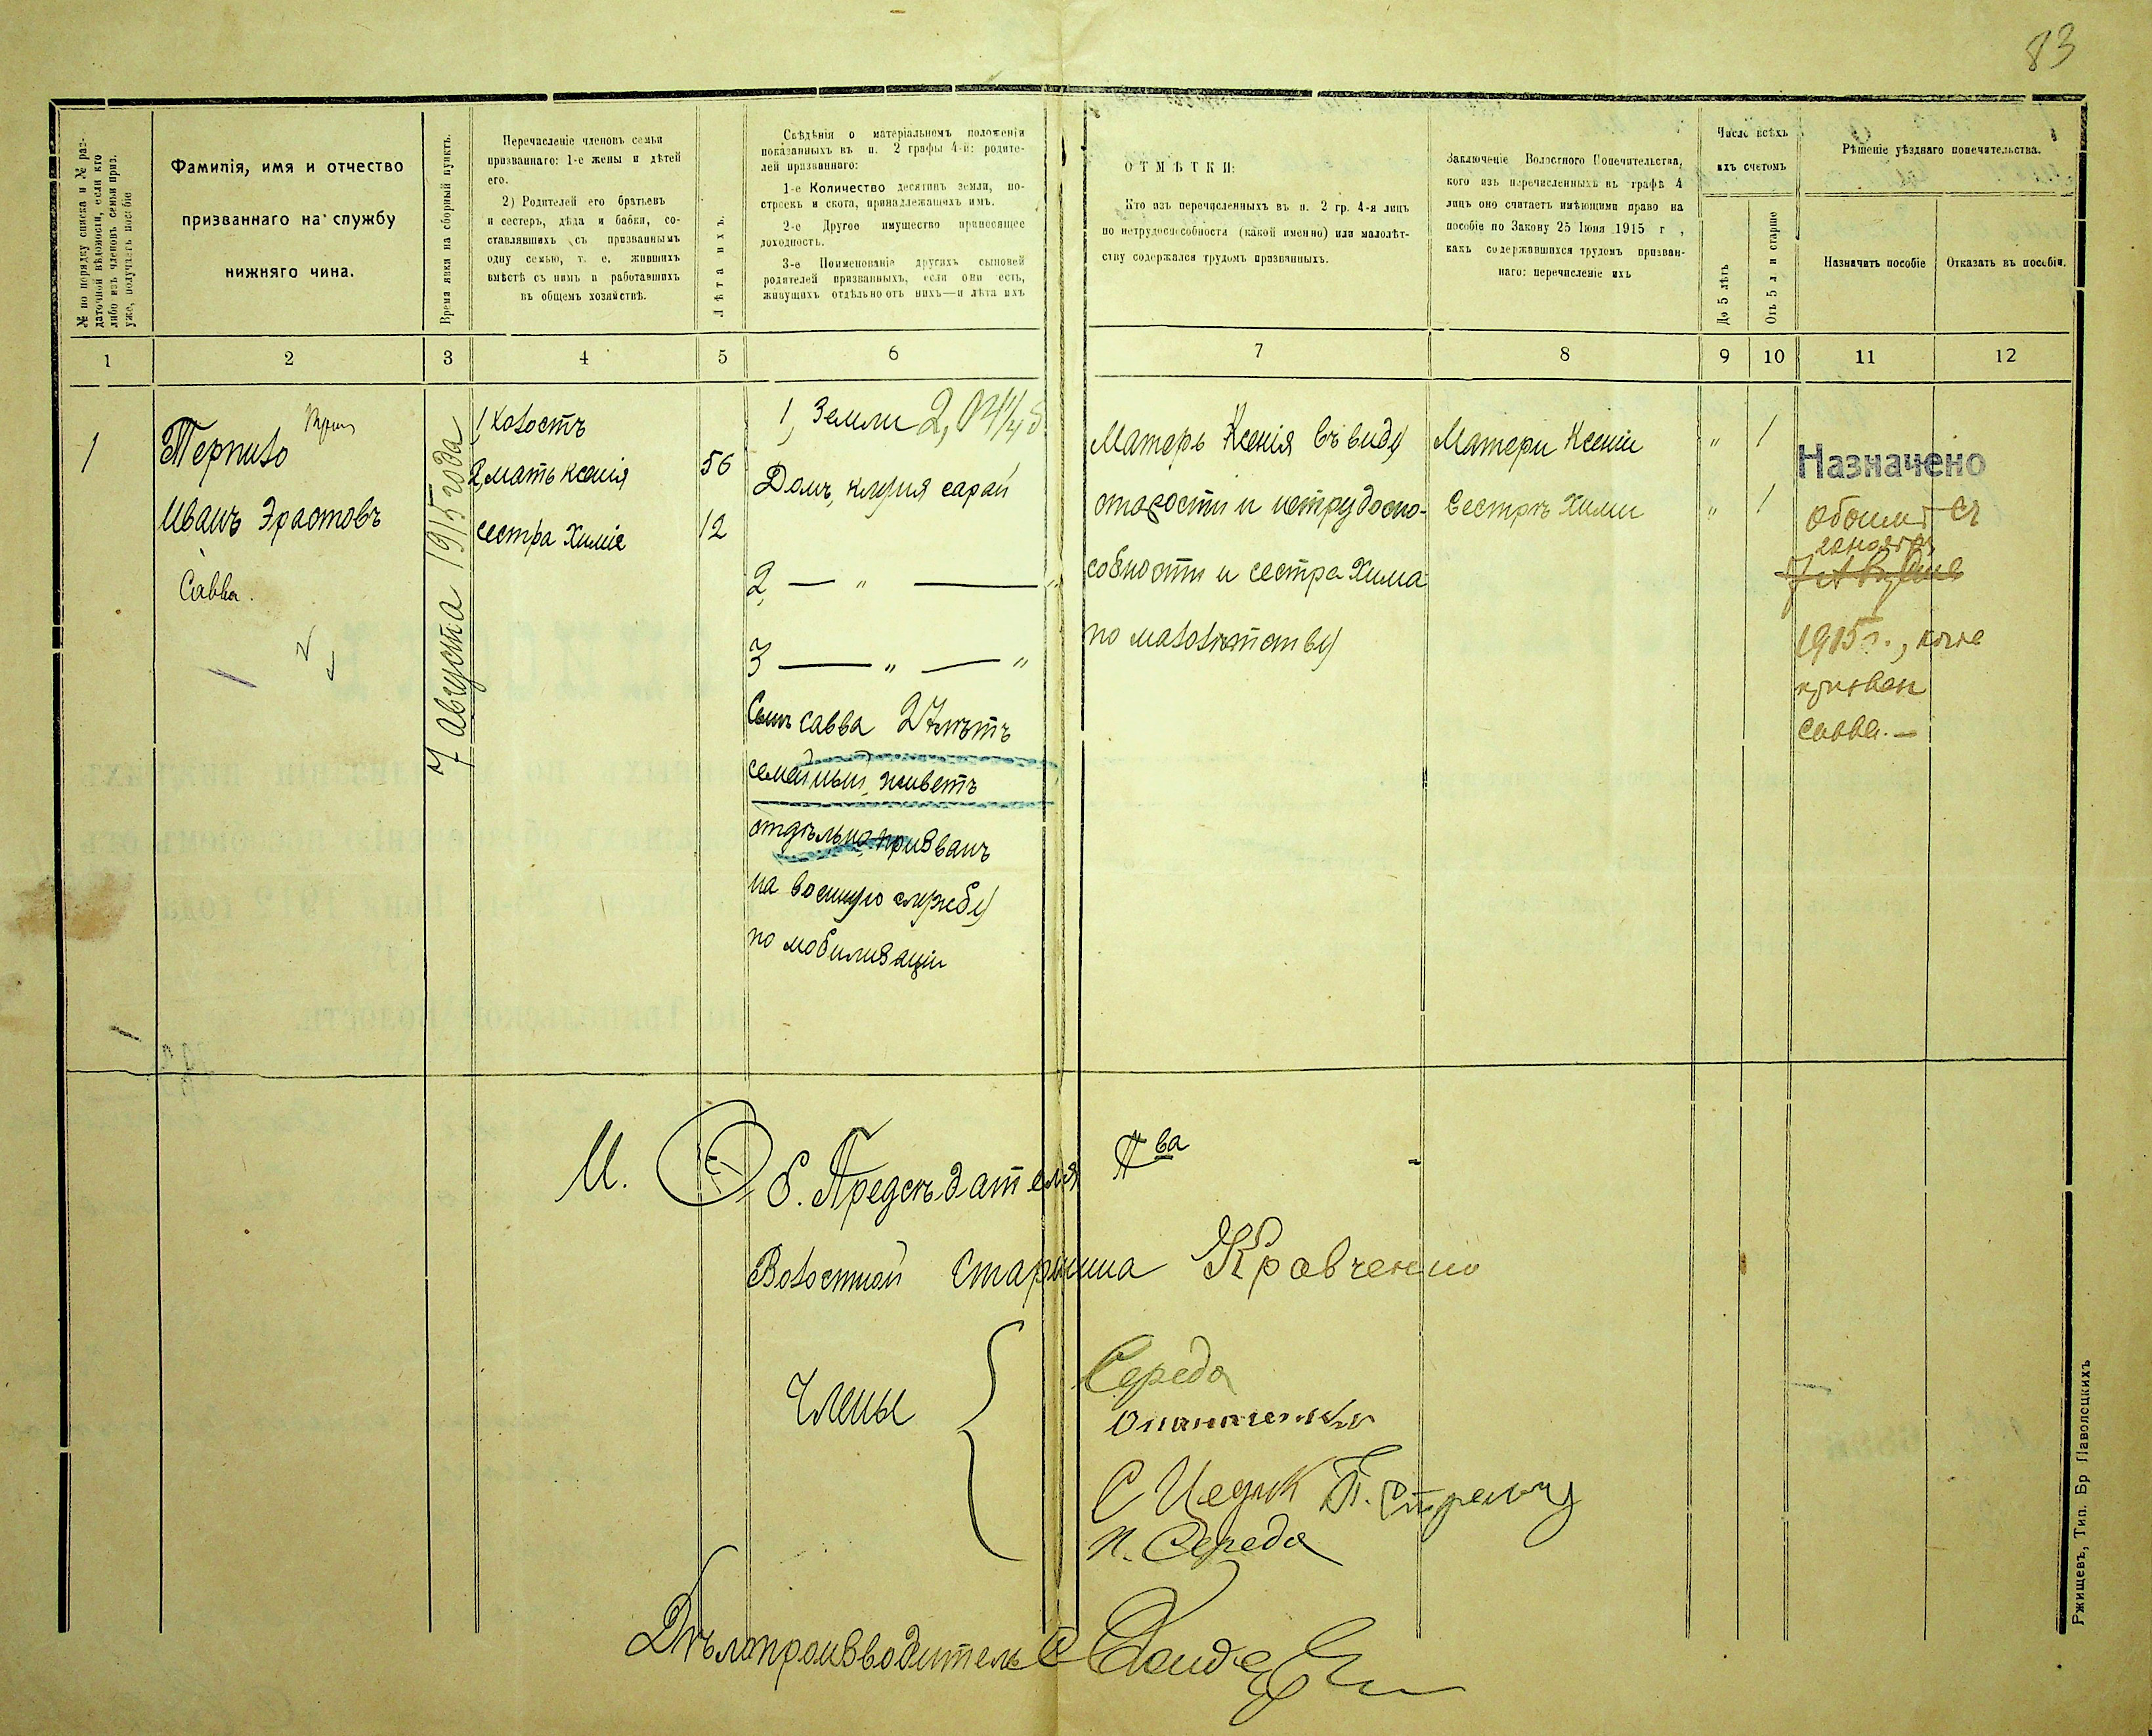 83
№ по порядку списка и № раз-
даточной вѣдомости, если кто
либо изъ членовъ семьи приз.
уже, получаетъ пособіе
Фамилія, имя и отчество
призваннаго на службу
нижняго чина.
Время явки на сборный пунктъ.
Перечасленіе членовъ семьи
призваннаго: 1-е жены и дѣтей
его.
2) Родителей его братьевъ
и сестеръ, дѣда и бабки, со-
ставлявшихъ съ призваннымъ
одну семью, т. е. жившихъ
вмѣстѣ съ нимъ и работавшихъ
въ общемъ хозяйствѣ.
Лѣта ихъ.
Свѣдѣнія о матеріальномъ положеніи
показанныхъ въ п. 2 графы 4-й: родите-
лей призваннаго:
1-е Количество десятинъ земли, по-
строекъ и скота, принадлежащихъ имъ.
2-е Другое имущество приносящее
доходность.
3-е Поименованіе другихъ сыновей
родителей призванныхъ, если они есть,
живущихъ отдѣльно отъ нихъ—и лѣта ихъ
ОТМѢТКИ:
Кто изъ перечисленныхъ въ п. 2 гр. 4-я лицъ
по нетрудоспособности (какой именно) или малолѣт-
ству содержался трудомъ призванныхъ.
Заключеніе Волостного Попечительства,
кого изъ перечисленныхъ въ графѣ 4
лицъ оно считаетъ имѣющими право на
пособіе по Закону 25 Іюня 1915 г ,
какъ содержавшихся трудомъ призван-
наго: перечисленіе ихъ
Число всѣхъ
ихъ счетомъ
До 5 лѣтъ
Отъ 5 л и старше
Рѣшеніе уѣзднаго попечительства.
Назначить пособіе
Отказать въ пособіи.
1 2 3 4 5 6 7 8 9 10 11 12
1
Терпило
Иванъ Эрастовъ
Савва.
7 августа 1915 года
1, холостъ
2, мать Ксенія 56
сестра Химіе 12
1, Земли 2,04 1/4 д
Домъ, клуня сарай
2, — " — "
3 — " — "
Сынъ савва 27 лѣтъ
семейный, живетъ
отдѣльно, призванъ
на военную службу
по мобилизаціи
Матерь Ксенія въ виду
старости и нетрудоспо-
собности и сестра Хима
по малолѣтству
Матери Ксеніи
Сестрѣ Хими
" 1
" 1
Назначено
обоимъ съ
7 Августа
1915 г., кроме
призван
савва. —
М.
Предсѣдателя П ва
Волостной Старшина Кравченко
Члены
Середа
Опанасенко
С Цедик П. Стрелец
Н. Середа
Дѣлопроизводитель
Ржищевъ, Тип. Бр Паволоцкихъ